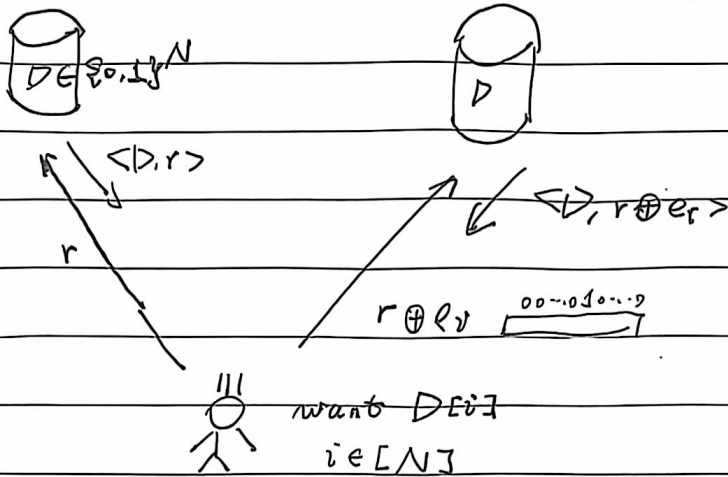 D∈{0,1}^N
D
<D,r>
<D, r⊕e_i>
r
r⊕e_i
00...010...0
want D[i]
i∈[N]